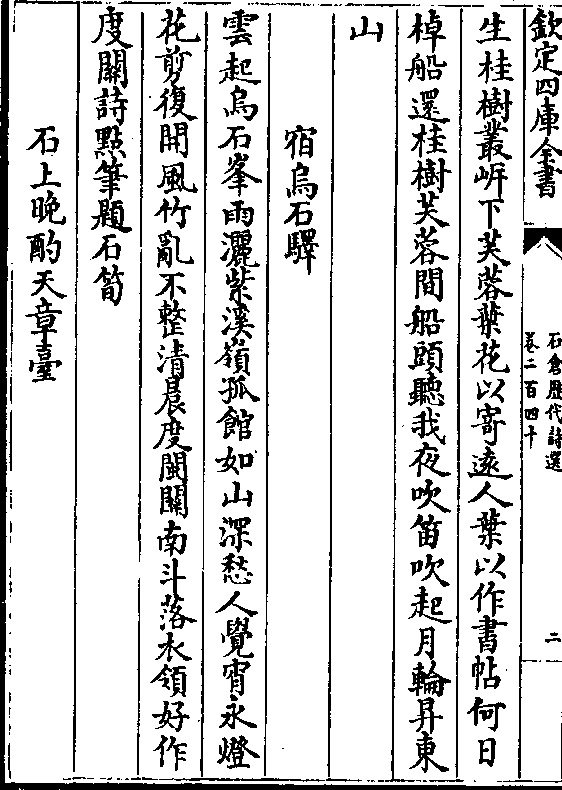 欽定四庫全書
石倉歷代詩選
卷二百四十
二
生桂樹叢㟁下芙蓉葉花以寄遠人葉以作書帖何日
棹船還桂樹芙蓉間船頭聽我夜吹笛吹起月輪昇東
山
宿烏石驛
雲起烏石峯雨灑紫溪嶺孤館如山深愁人覺宵永燈
花剪復開風竹亂不整清晨度閩關南斗落衣領好作
度關詩點筆題石筍
石上晚酌天章臺